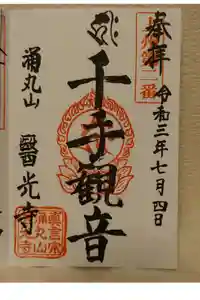 奉拝
令和三年七月四日
千手観音
涌丸山
醫光寺
真言宗
涌丸山
医光寺